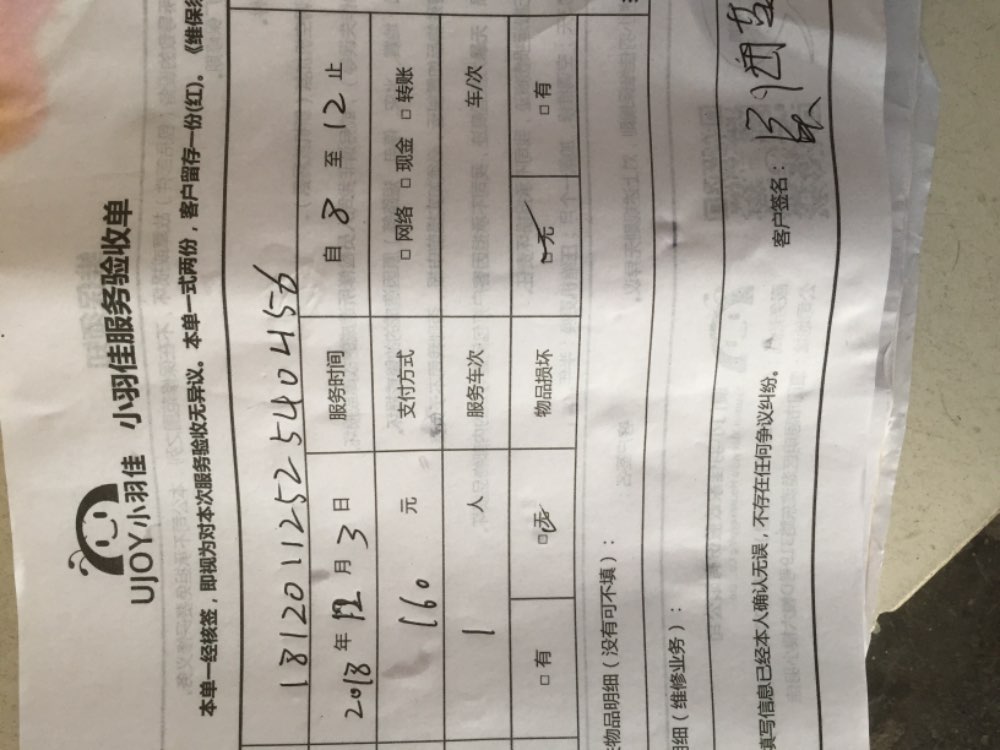 UJOY小羽佳 小羽佳服务验收单
本单一经核签，即视为对本次服务验收无异议。本单一式两份，客户留存一份(红)。《维保须
181201125254 04156
2018年12月3日 服务时间 自8至12止
160元 支付方式 □网络 □现金 □转账
1人 服务车次 车/次
□有 □无 物品损坏 □无 □有
物品明细（没有可不填）：
细（维修业务）：
填写信息已经本人确认无误，不存在任何争议纠纷。 客户签名：